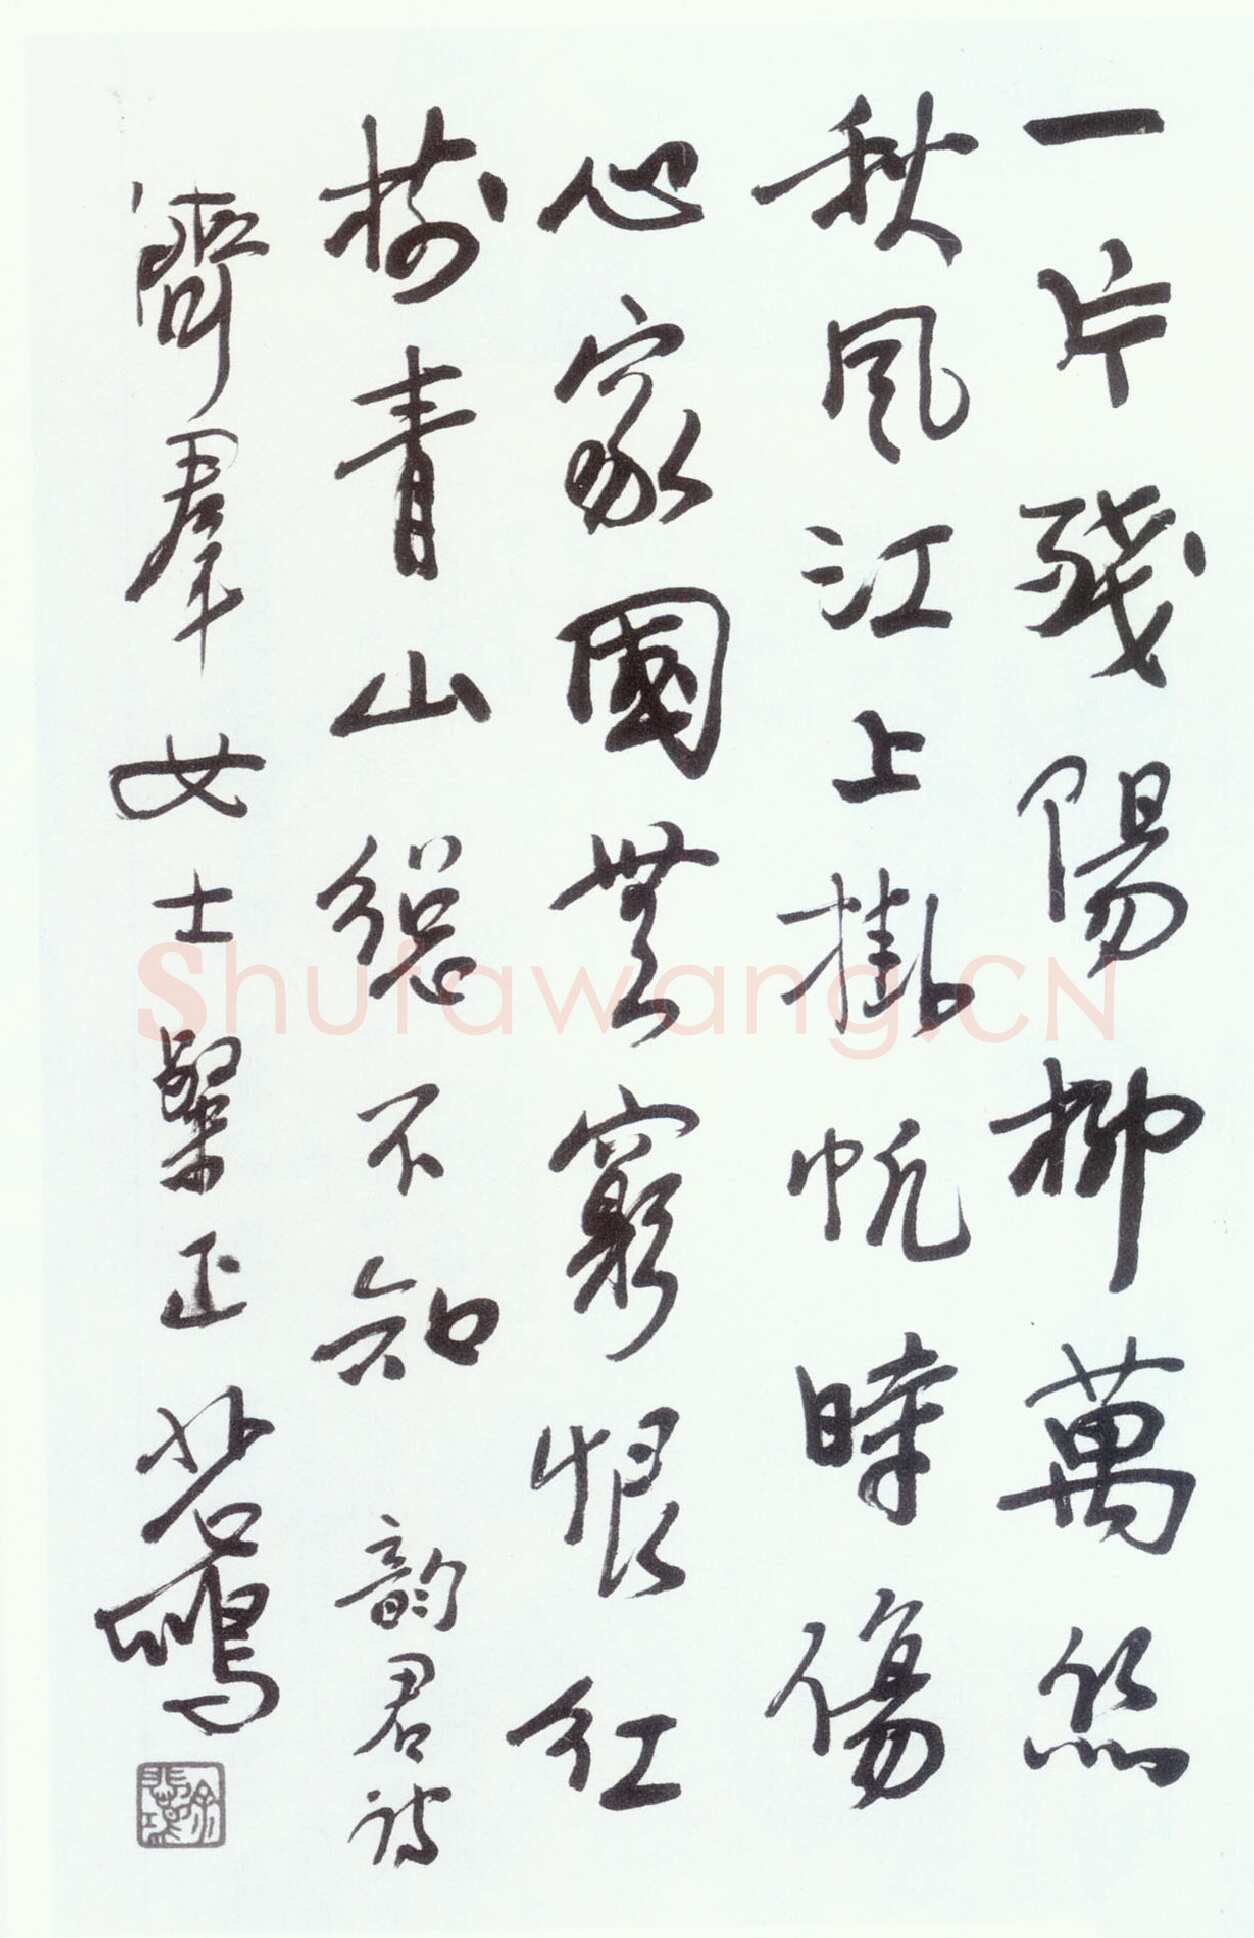 一片殘陽柳萬絲
秋風江上掛帆時傷
心家國無窮恨紅
樹青山總不知 韵君詩
齊羣女士粲正 悲鴻
徐悲鴻
Shufawang.CN